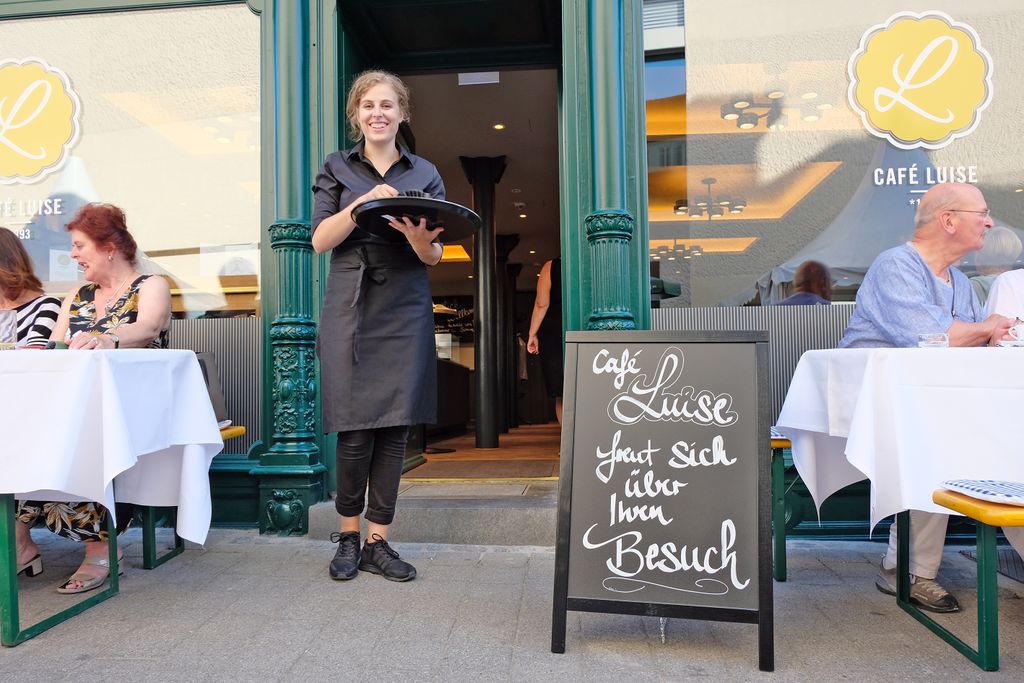 L
FÉ LUISE
893
L
CAFÉ LUISE
Café
Luise
freut sich
über
Ihren
Besuch